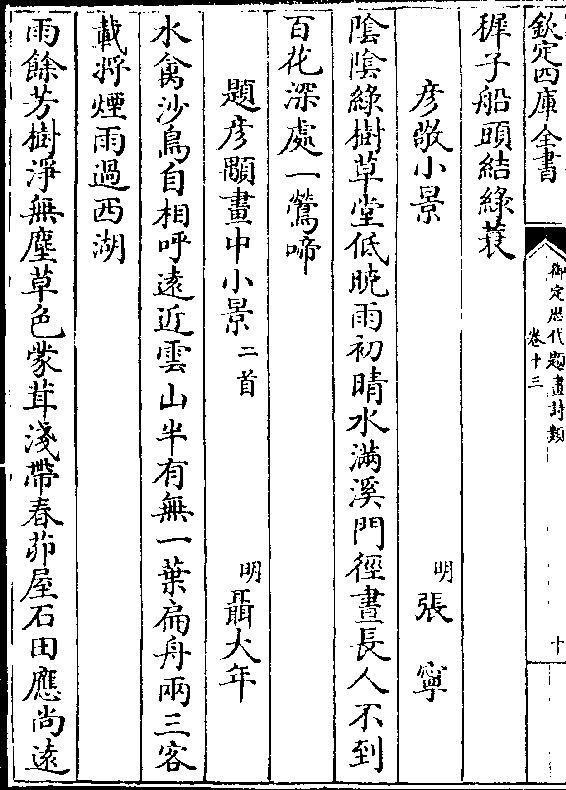 欽定四庫全書
御定歴代題畫詩類
卷十三
十
穉子船頭結綠蓑
彦敬小景
明
張寧
陰陰綠樹草堂低晚雨初晴水滿溪門徑晝長人不到
百花深處一鶯啼
題彦顒畫中小景二首
明
聶大年
水禽沙鳥自相呼遠近雲山半有無一葉扁舟兩三客
載將煙雨過西湖
雨餘芳樹淨無塵草色蒙茸淺帶春茆屋石田應尚遠